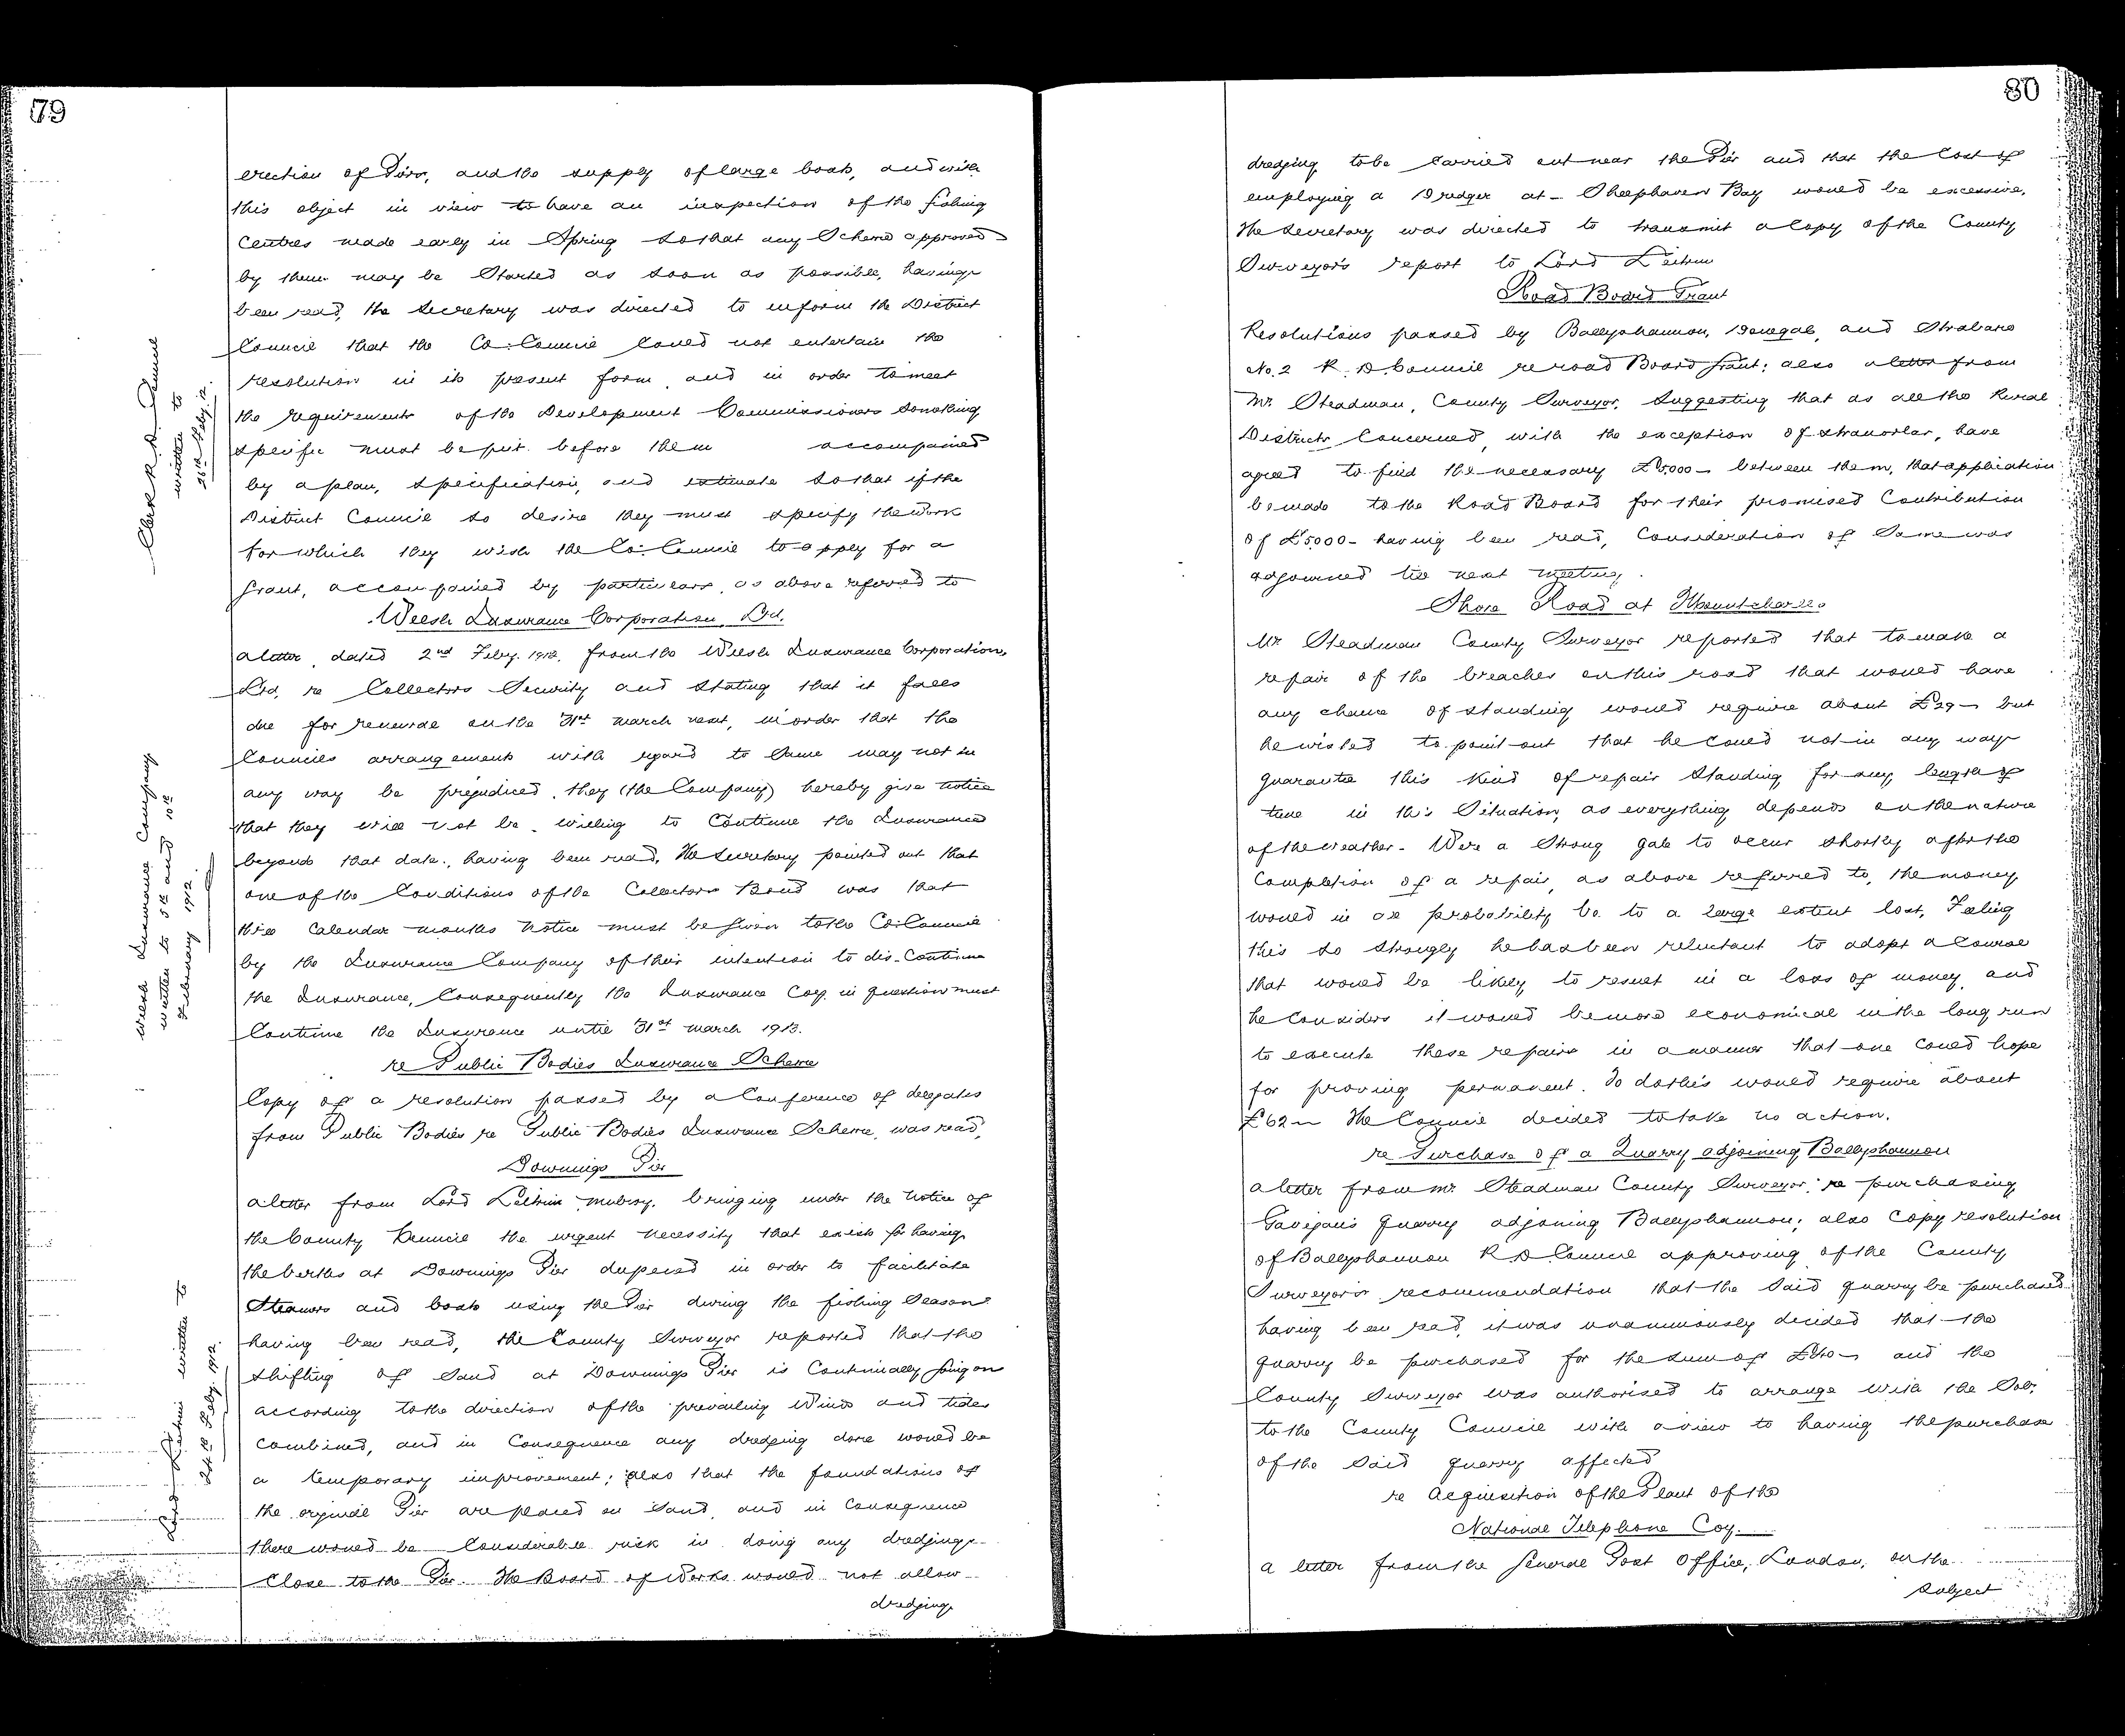 79
erection of Piers, and the supply of large boats, and with
this object in view to have an inspection of the fishing
Centres made early in Spring so that any Scheme approved
by them may be Started as soon as possible, having
been read, the Secretary was directed to inform the District
Council that the Co: Council Could not entertain the
resolution in its present form, and in order to meet
the requirements of the Development Commissioners something
specific must be put before them accompanied
by a plan, specification, and estimate so that if the
District Council so desire they must specify the work
for which they wish the Co: Council to apply for a
Grant, accompanied by particulars, as above referred to
Welsh Insurance Corporation, Ltd.
a letter, dated 2nd Feby. 1912, from the Welsh Insurance Corporation,
Ltd, re Collectors Security and stating that it falls
due for renewal on the 31st March next, in order that the
Councils arrangements with regard to same may not in
any way be prejudiced, they (the Company) hereby give notice
that they will not be willing to Continue the Insurance
beyond that date., having been read, The Secretary pointed out that
one of the Conditions of the Collectors Bond was that
three Calendar months notice must be given to the Co: Council
by the Insurance Company of their intention to dis-Continue
the Insurance, Consequently the Insurance Coy. in question must
Continue the Insurance until 31st March 1913.
re Public Bodies Insurance Scheme
Copy of a resolution passed by a Conference of delegates
from Public Bodies re Public Bodies Insurance Scheme, was read,
Downings Pier
a letter from Lord Leitrim, Mulroy, bringing under the notice of
the County Council the urgent necessity that exists for having
the berths at Downings Pier deepened in order to facilitate
Steamers and boats using the Pier during the fishing Season
having been read, the County Surveyor reported that the
shifting of Sand at Downings Pier is Continually going on
according to the direction of the prevailing Winds and tides
combined, and in Consequence any dredging done would be
a temporary improvement; also that the foundations of
the original Pier are placed on Sand, and in Consequence
there would be Considerable risk in doing any dredging
Close to the Pier. The Board of Works would not allow
dredging
Clerk R.D. Council
written to
26th Feby. 12.
Welsh Insurance Company
written to 5th and 10th
February 1912.
Lord Leitrim written to
24th Feby 1912.
80
dredging to be Carried out near the Pier and that the Cost of
employing a Dredger at Sheephaven Bay would be excessive,
The Secretary was directed to transmit a Copy of the County
Surveyor's report to Lord Leitrim
Road Board Grant
Resolutions passed by Ballyshannon, Donegal, and Strabane
No. 2 R. D. Council re road Board Grant: also a letter from
Mr. Steadman, County Surveyor, Suggesting that as all the Rural
Districts Concerned, with the exception of Stranorlar, have
agreed to find the necessary £5000 between them, that application
be made to the Road Board for their promised Contribution
of £5000 having been read, Consideration of Same was
adjourned till next meeting.
Shore Road at Mountcharles
Mr. Steadman County Surveyor reported that to make a
repair of the breaches on this road that would have
any chance of standing would require about £29 but
he wished to point out that he could not in any way
guarantee this kind of repair Standing for any length of
time in this Situation, as everything depends on the nature
of the weather. Were a Strong gale to occur shortly after the
Completion of a repair, as above referred to, the money
would in all probability be to a large extent lost, Feeling
this so strongly he has been reluctant to adopt a Course
that would be likely to result in a loss of money, and
he Considers it would be more economical in the long run
to execute these repairs in a manner that one Could hope
for proving permanent. To do this would require about
£62 The Council decided to take no action.
re Purchase of a Quarry adjoining Ballyshannon
a letter from Mr. Steadman County Surveyor, re purchasing
Gavigan's Quarry adjoining Ballyshannon; also Copy resolution
of Ballyshannon R.D. Council approving of the County
Surveyor's recommendation that the said quarry be purchased
having been read, it was unanimously decided that the
quarry be purchased for the sum of and the
County Surveyor was authorised to arrange with the Solr.
to the County Council with a view to having the purchase
of the said quarry affected
re Acquisition of the Plant of the
National Telephone Coy.
a letter from the General Post Office, London, on the
subject